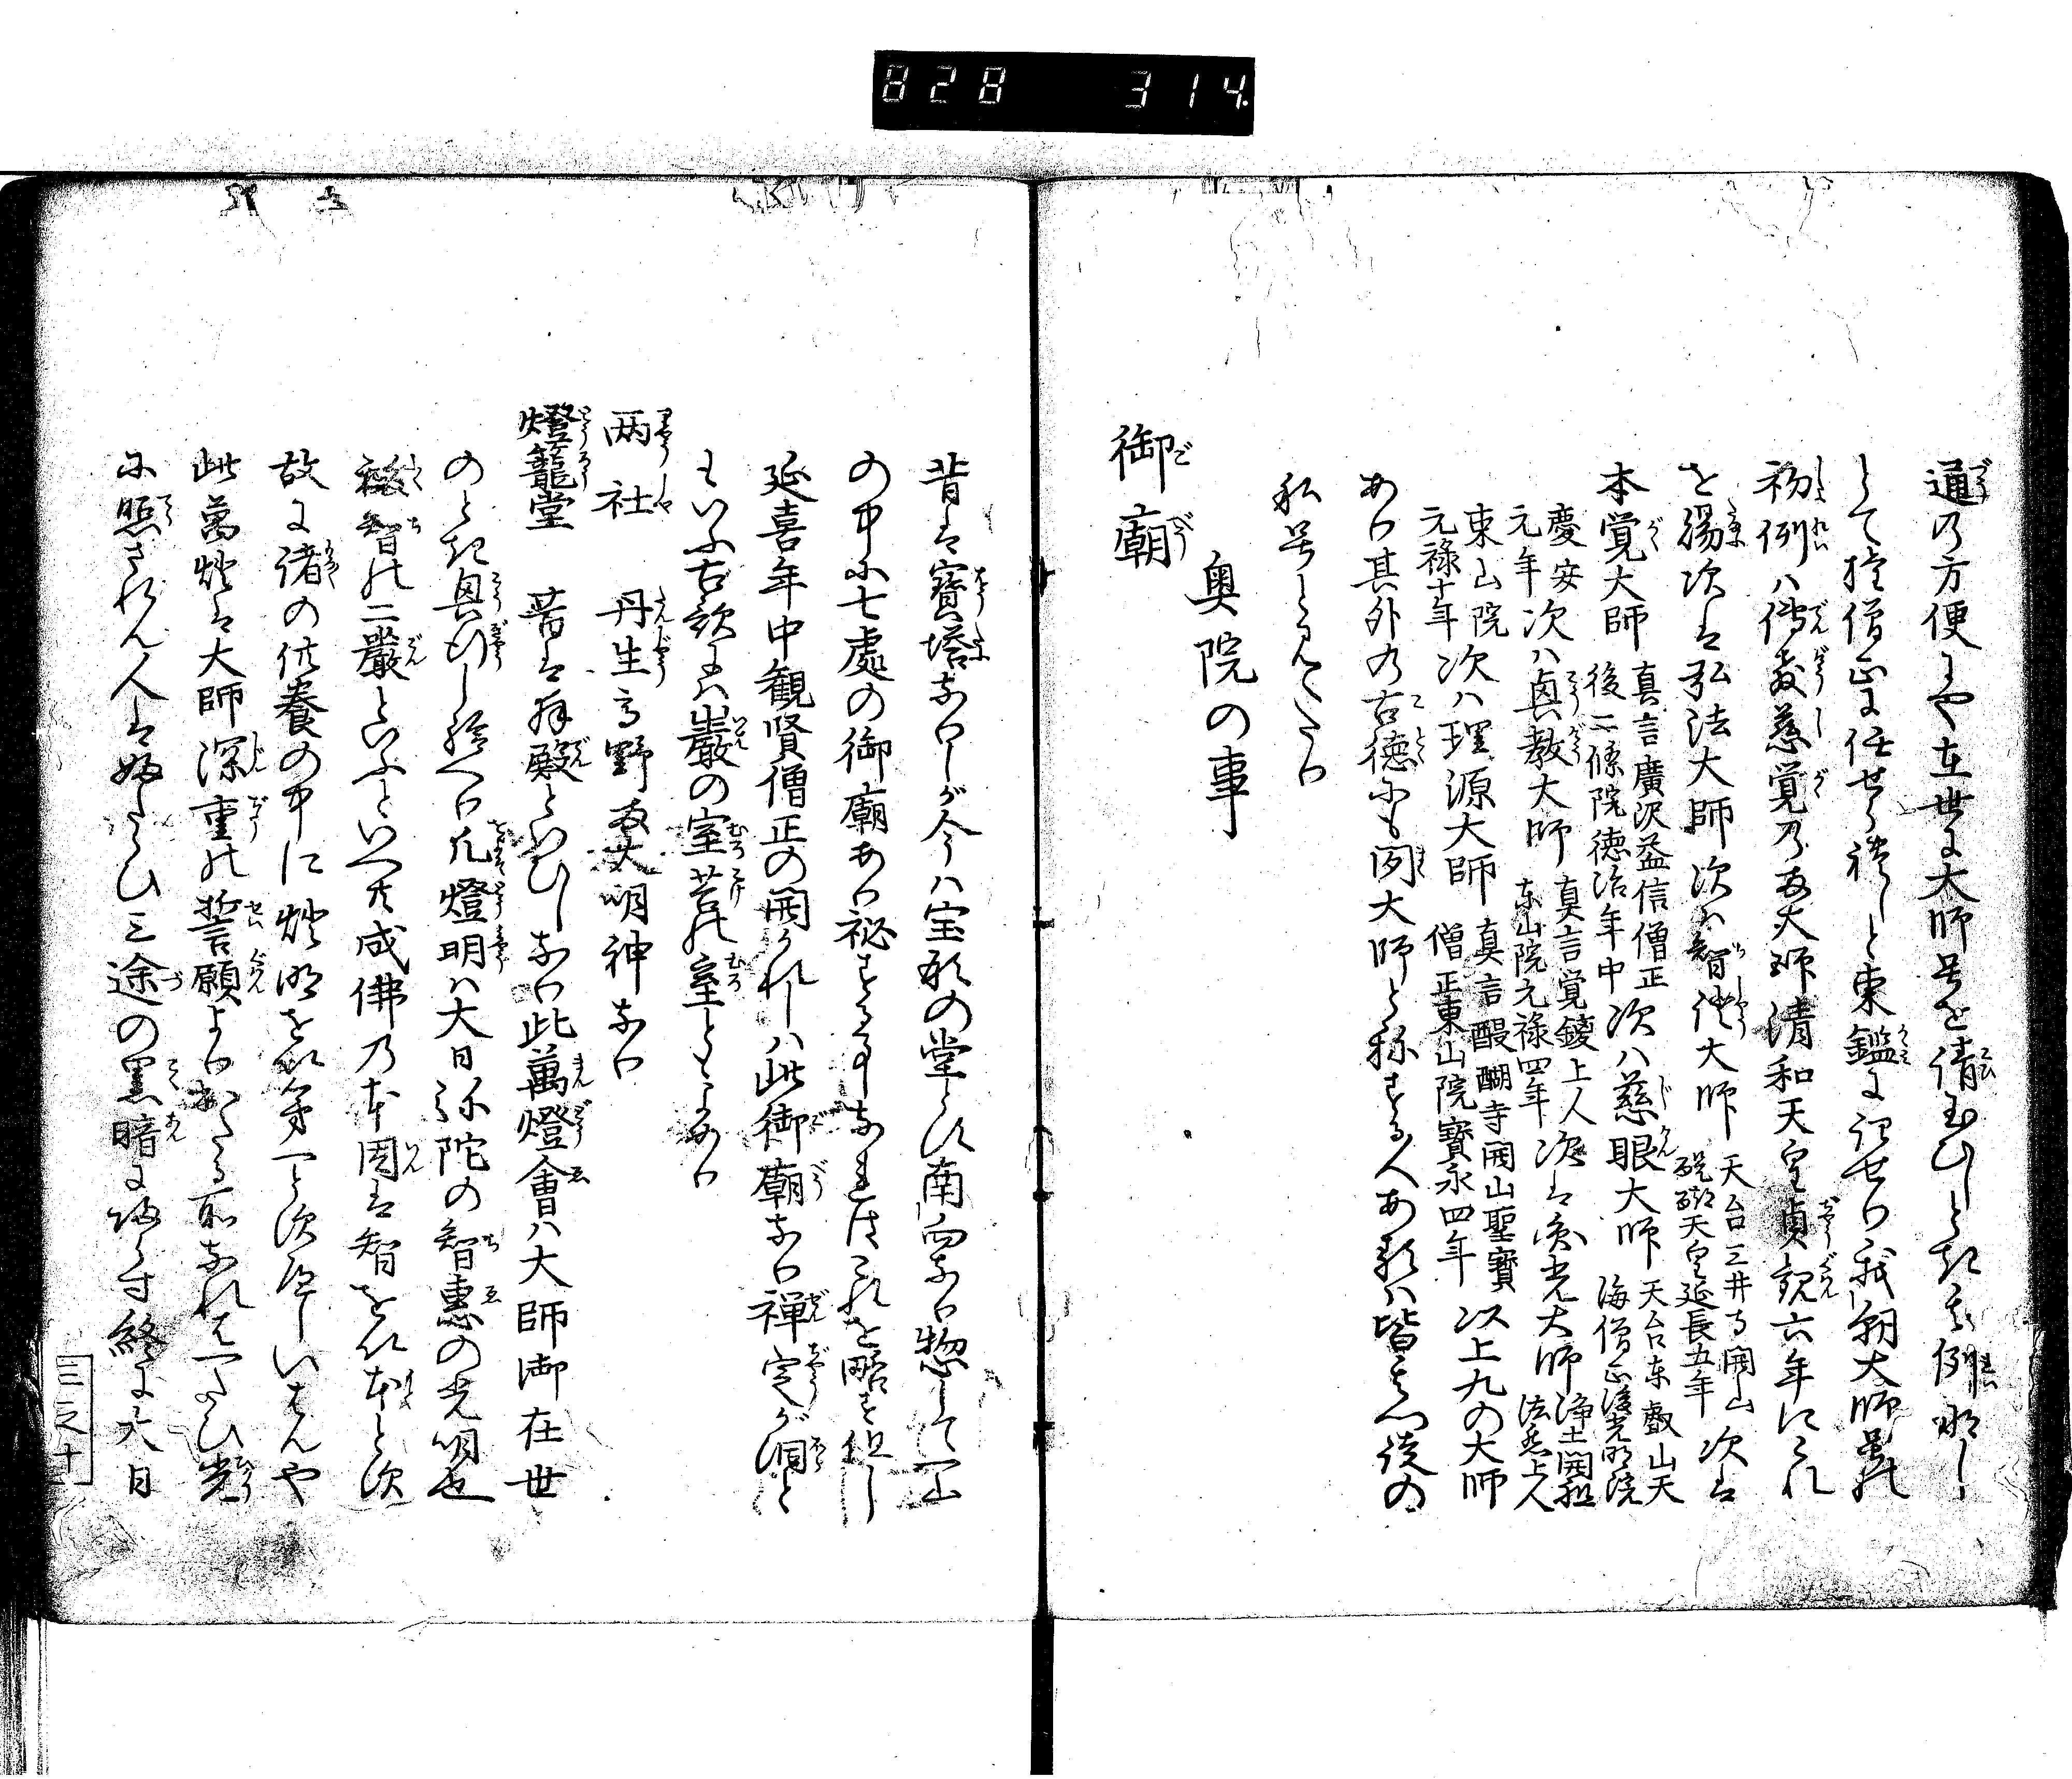 828 314
通の方便にや在世に大師号を請玉ひしとき其例れいなし
して権僧正に任せらるとと東鑑に記せり我朝大師号の
初例ハ傳教慈覚の両大師清和天皇貞観六年にこれ
を賜次は弘法大師次は智證大師 天台三井寺開山 醍醐天皇延長五年 次は
本覚大師 真言廣沢益信僧正 後二條院徳治年中 次ハ慈眼大師 天台东叡山天 海僧正後光明院
慶安 元年 次ハ興教大師 真言覚鑁上人 东山院元禄四年 次は圓光大師 浄土開祖 法然上人
東山院 元禄十年 次ハ理源大師 真言醍醐寺開山聖寶 僧正東山院寶永四年 以上九の大師
あり其外の古徳にも間大師と称する人あ
私号と見へたり
奥院の事
御廟
昔は寶塔なりしが今ハ宝形の堂とす南向なり惣して一山
の中に七處の御廟あり秘する事なればこれを略す但し
延喜年中観賢僧正の開かれしハ此御廟なり禅定が洞と
もいふ古歌にハ巌の室苔の室ともあり
両社 丹生高野両大明神なり
燈籠堂 昔は拝殿といひしなり此萬燈會ハ大師御在世
のとき興行し給へり凡燈明ハ大日弥陀の智惠の光明也
福智の二嚴といふといへ共成佛の本因は智を以本とす
故に諸の供養の中に燈明を以第一とす況いはんや
此萬燈は大師深重の誓願よりおこる所なれは一たひ光
に照されん人は永く三途の黒暗に帰らす終に大日
三之十